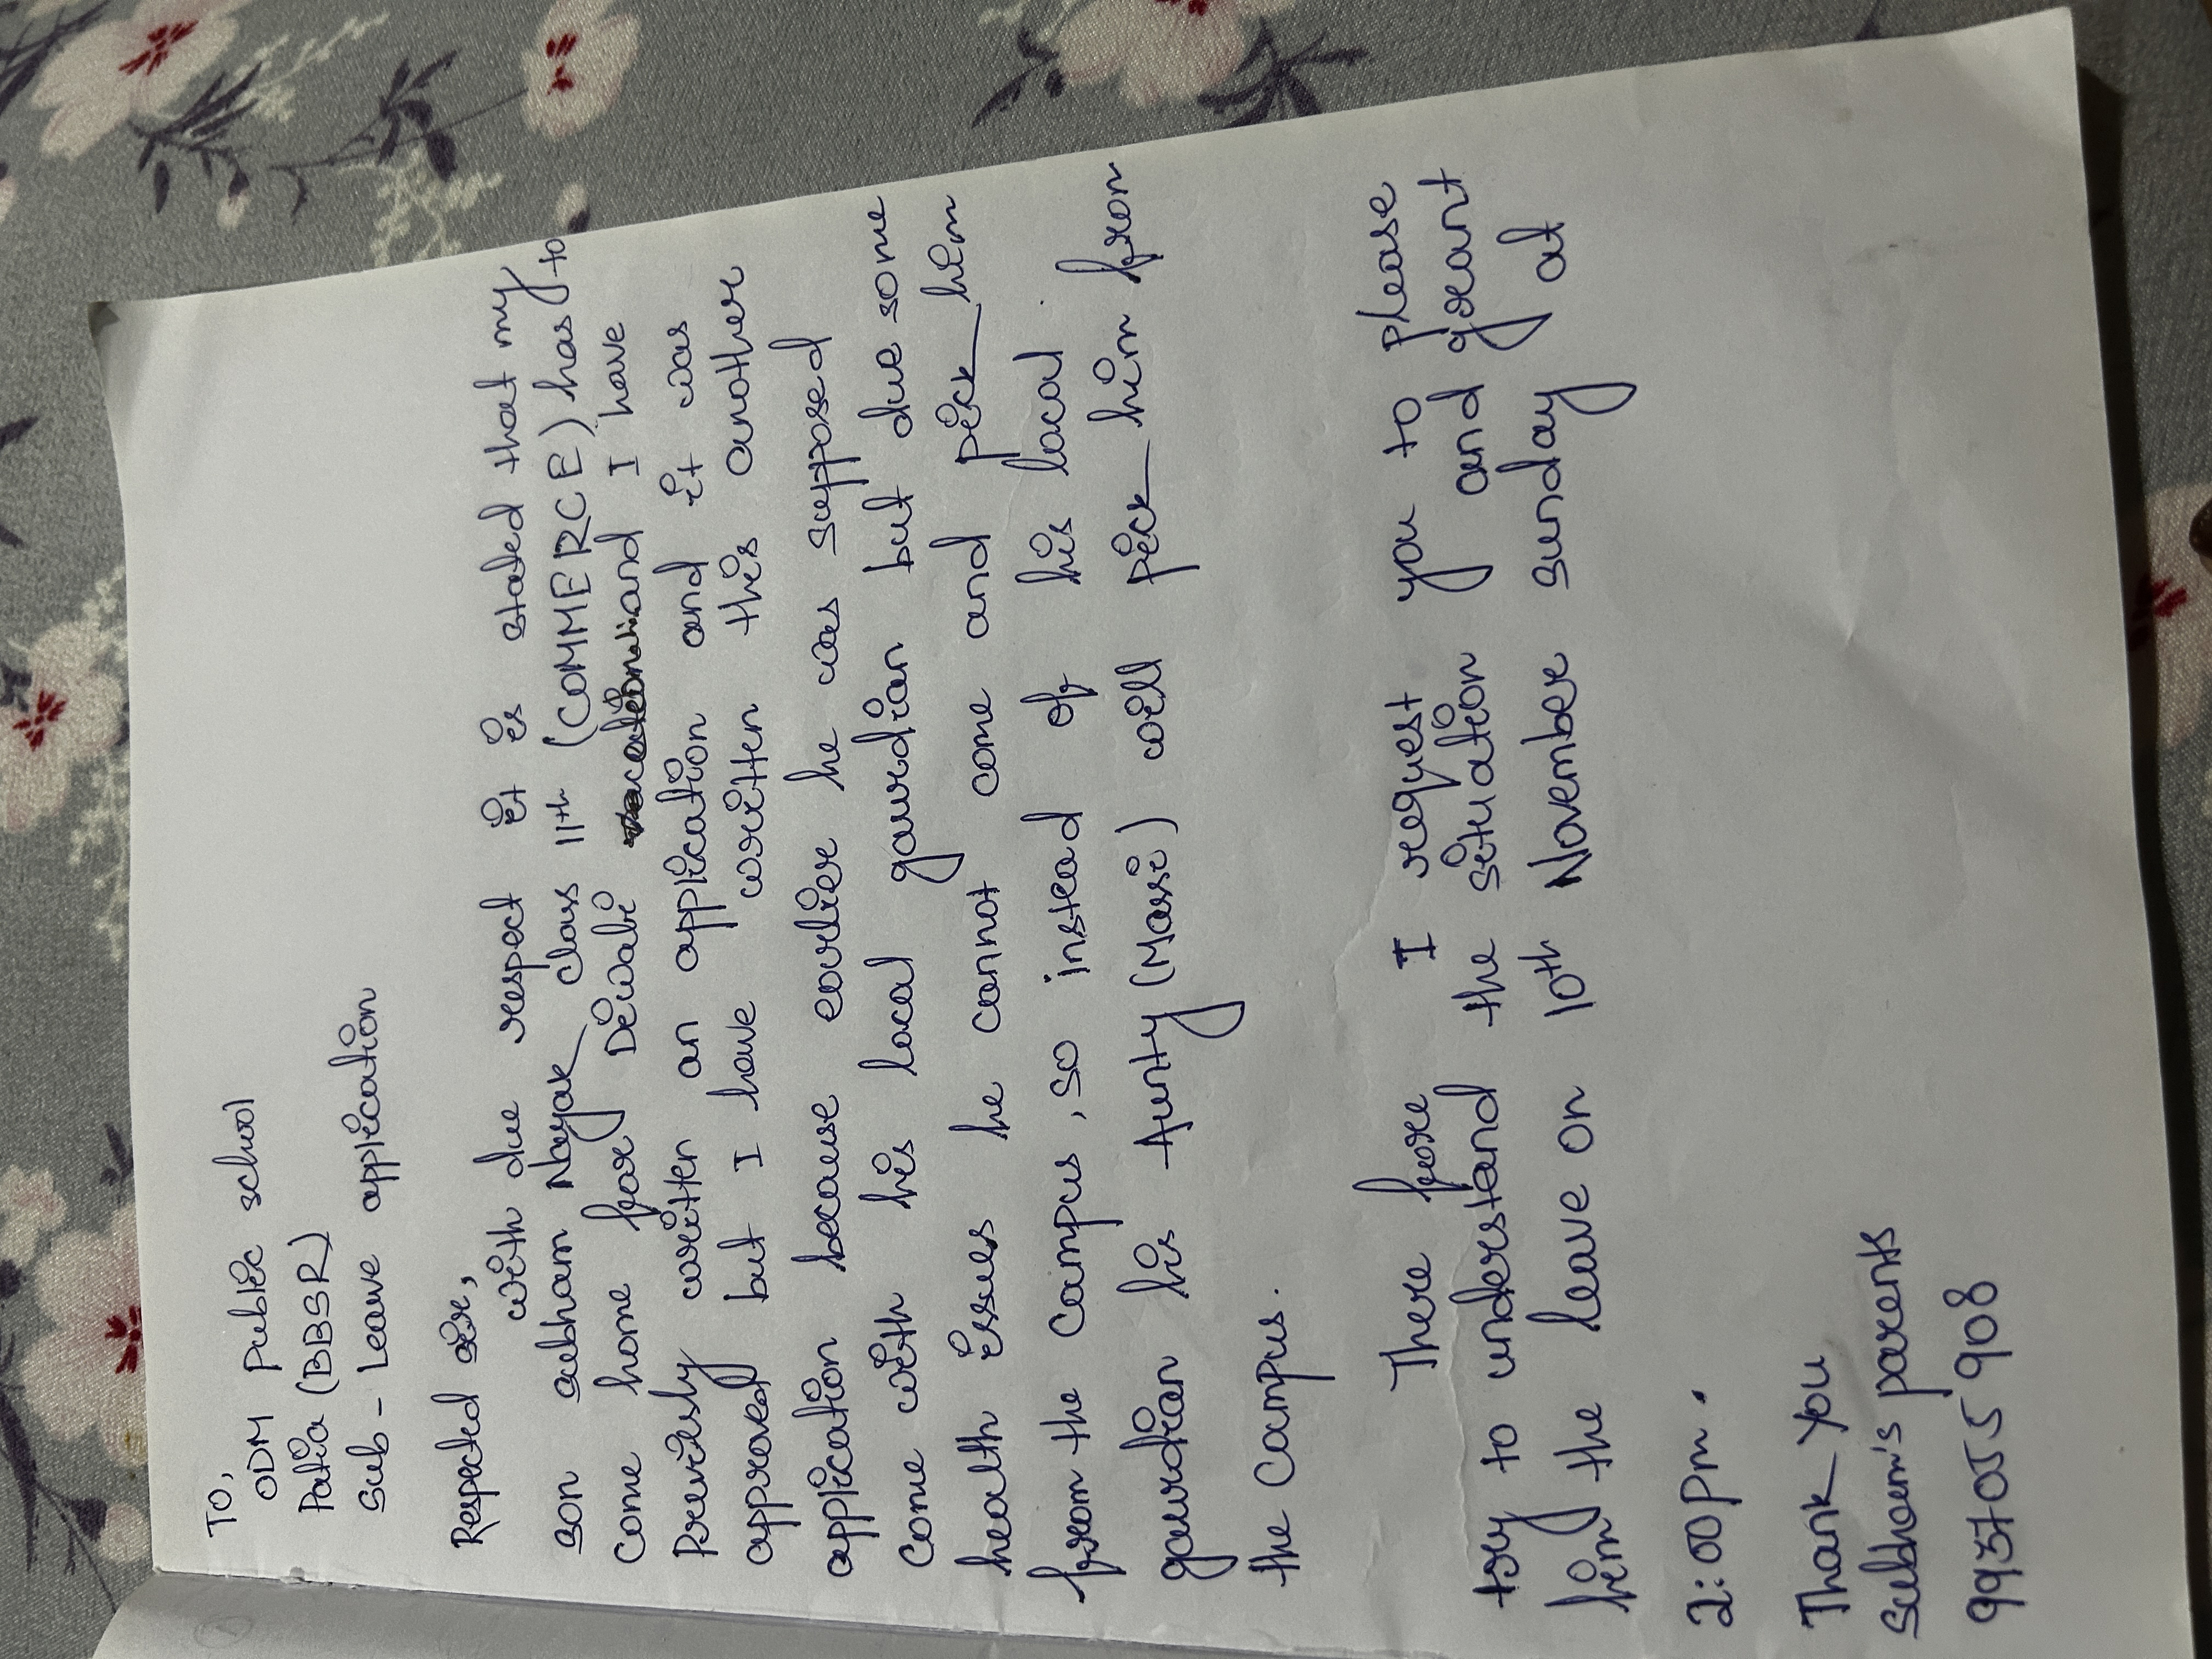 To,
ODM Public school
Patia (BBSR)
Sub - Leave application
Respected sir,
with due respect it is stated that my
son subham Nayak class 11th (COMMERCE) has to
come home for Diwali vacation and I have
Previously written an application and it was
approved but I have written this another
application because earlier he was supposed
Come with his local gaurdian but due some
health issues he cannot come and pick him
from the campus, so instead of his local
gaurdian his Aunty (Masi) will pick him fron
the Campus.
There fore I request you to please
try to understand the situation and grant
him the leave on 10th November sunday at
2:00 Pm.
Thank you
Subham's parents